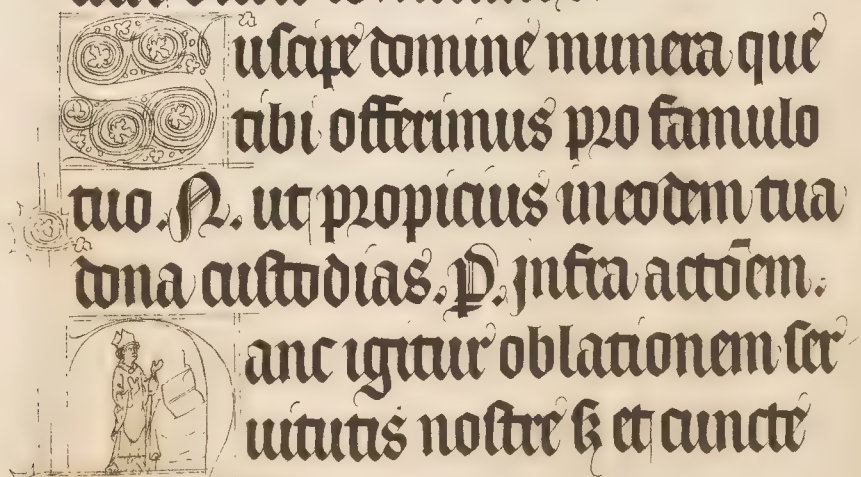 Suscipe domine munera que
tibi offerimus pro famulo
tuo. N. ut propicius in eodem tua
dona custodias. P. infra actōem.
Hanc igitur oblationem ser
uitutis nostre sꝫ et cuncte